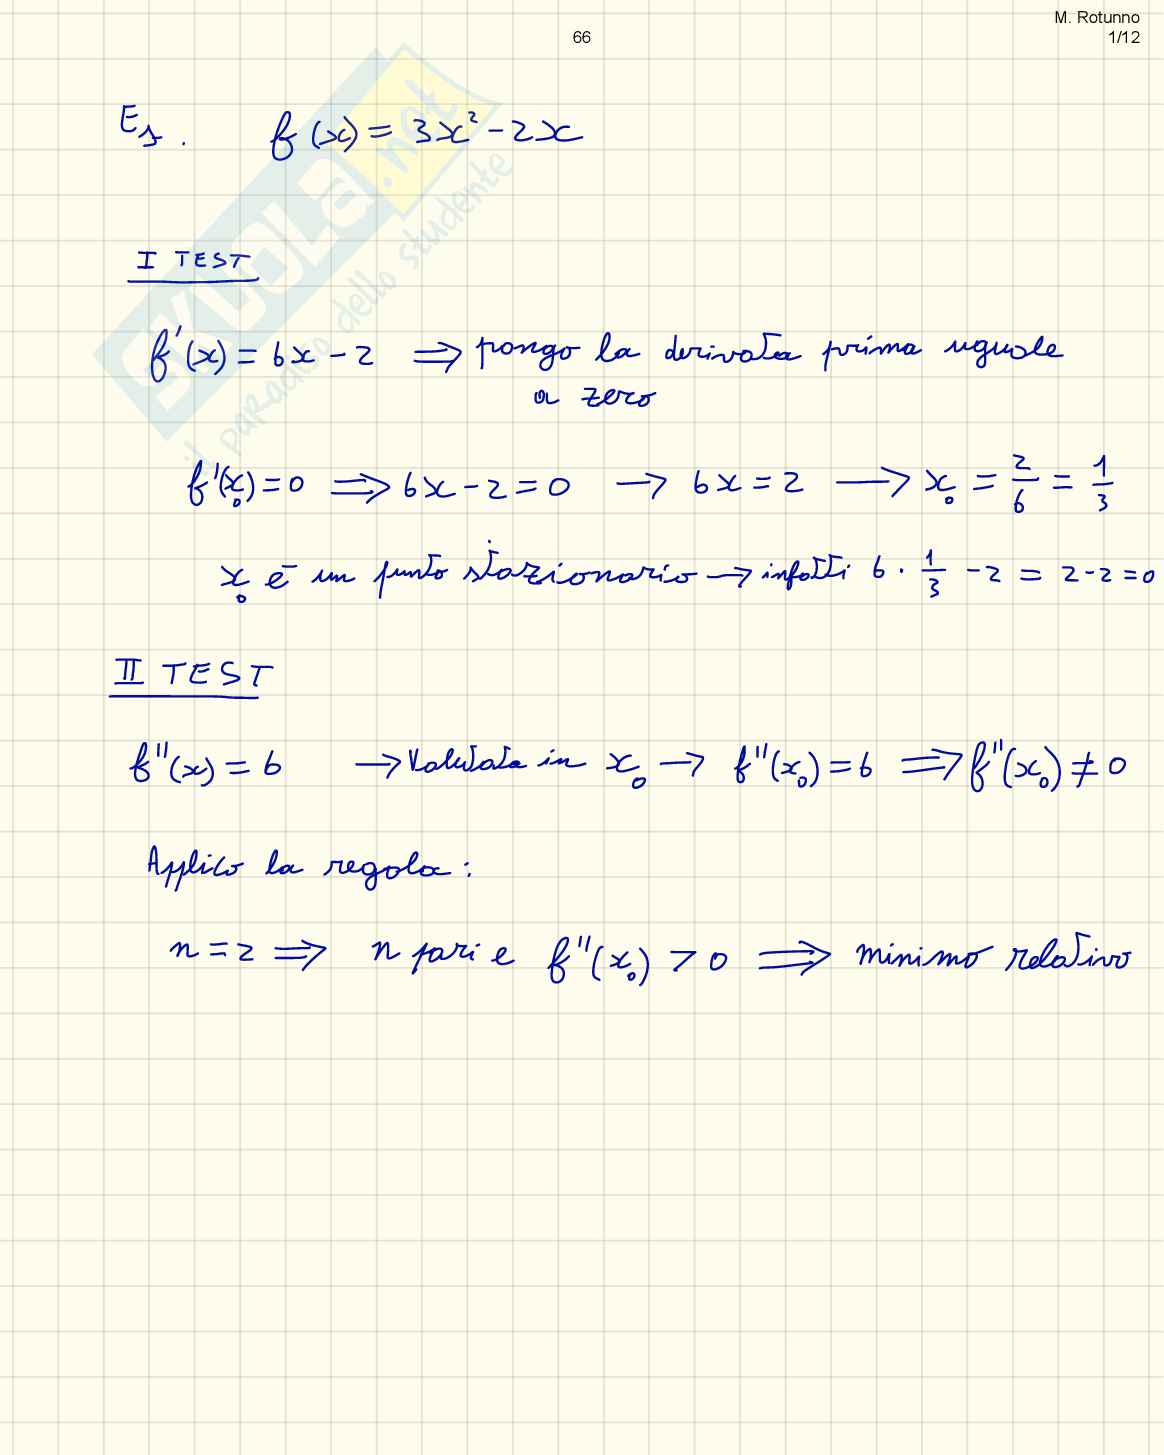 M. Rotunno
66
1/12
Es. f(x) = 3x² - 2x
SKUOLA.net
il paradiso dello studente
I TEST
f'(x) = 6x - 2 ⟹ pongo la derivata prima uguale
a zero
f'(x₀) = 0 ⟹ 6x - 2 = 0 → 6x = 2 → x₀ = 2/6 = 1/3
x₀ è un punto stazionario → infatti 6 · 1/3 - 2 = 2 - 2 = 0
II TEST
f''(x) = 6 → Valutata in x₀ → f''(x₀) = 6 ⟹ f''(x₀) ≠ 0
Applico la regola:
n = 2 ⟹ n pari e f''(x₀) > 0 ⟹ minimo relativo